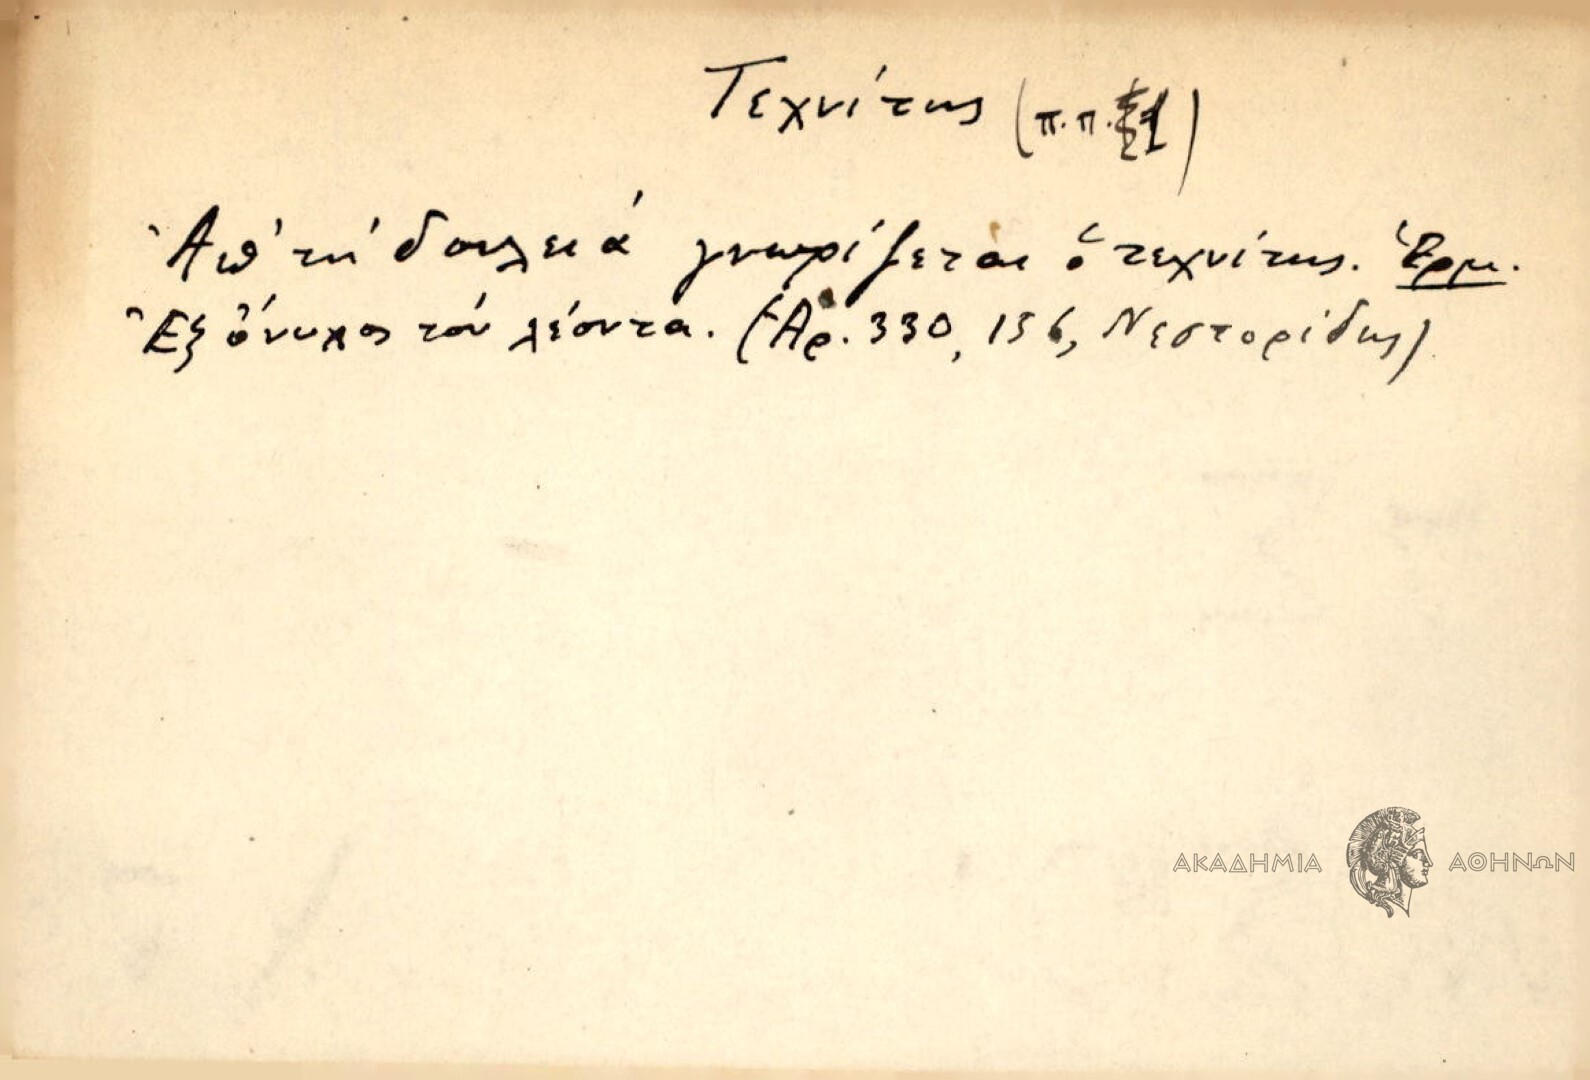 Τεχνίτης (π.π.)
Ἀπ' τή δουλειά γνωρίζεται ὁ τεχνίτης. Ἑρμ.
Ἐξ ὄνυχος τόν λέοντα. (Ἀρ. 330, 136, Νεστορίδης)
ΑΚΑΔΗΜΙΑ ΑΘΗΝΩΝ